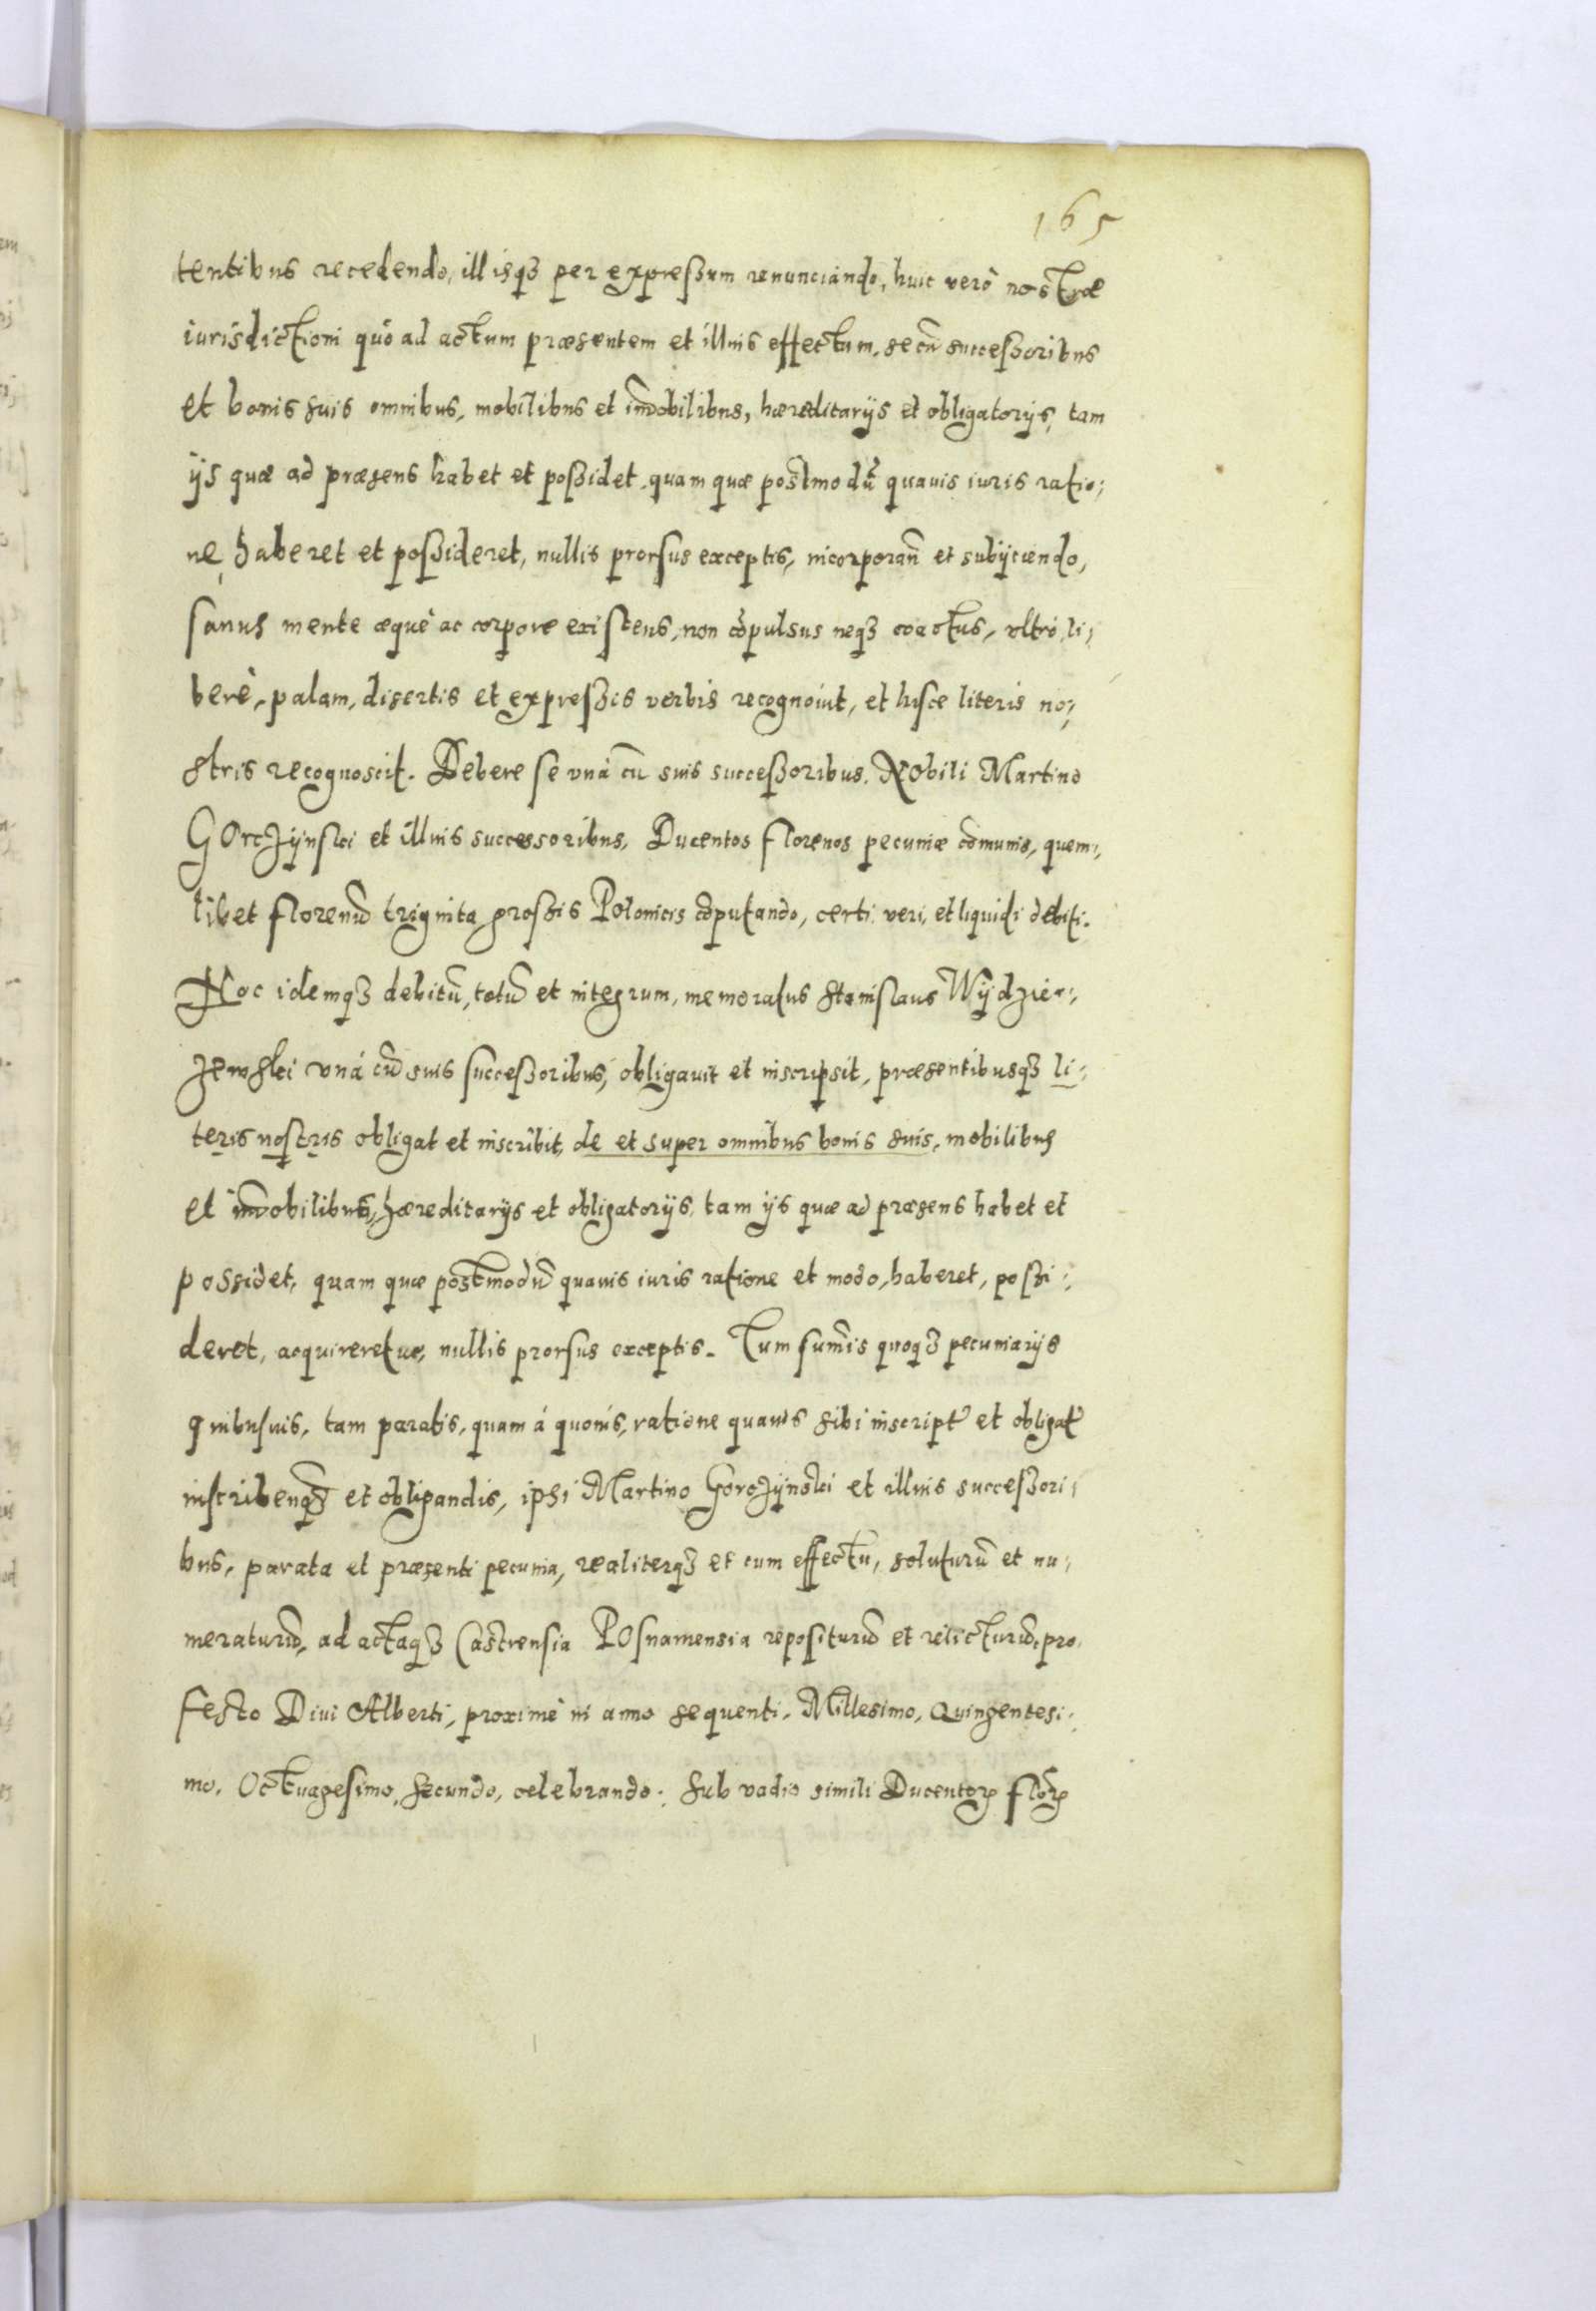 165
tentibus recedendo, illisqȝ per expreßum renunciando, huic verò nostræ
iurisdictioni quò ad actum præsentem et illius effectum, se cū succeßoribus
et bonis suis omnibus, mobilibus et im̄obilibus, hæreditarijs et obligatorijs, tam
ijs quæ ad præsens habet et poßidet, quam quæ postmodū quauis iuris ratio;
ne, haberet et poßideret, nullis prorsus exceptis, incorporan̄ et subijciendo,
sanus mente æquè ac corpore existens, non cōpulsus neqȝ coactus, vltrò, li,
berè, palam, disertis et expreßis verbis recognouit, et hisce literis no;
stris recognoscit. Debere se vnà cū suis succeßoribus. Nobili Martino
GOrczÿnski et illius successoribus, Ducentos florenos pecuniæ cōmunis, quem;
libet florenū triginta großis Polonicis cōputando, certi veri, et liquidi debiti.
Hoc idemqȝ debitū, totū et integrum, memoratus Stanislaus Wÿdzier;
zewski vnà cū suis succeßoribus, obligauit et inscripsit, præsentibusqȝ li;
teris nostris obligat et inscribit, de et super omnibus bonis suis, mobilibus
et im̄obilibus, hæreditarijs et obligatorijs, tam ijs quæ ad præsens habet et
possidet, quam quæ postmodū quauis iuris ratione et modo, haberet, poßi;
deret, acquireretue, nullis prorsus exceptis. Tum sum̄is quoqȝ pecuniarijs
quibusuis, tam paratis, quam á quouis, ratione quauis sibi inscript et obligat
inscribenqȝ et obligandis, ipsi Martino Gorczÿnski et illius succeßori,
bus, parata et præsenti pecunia, realiterqȝ et cum effectu, soluturū et nu,
meraturū, ad actaqȝ Castrensia POsnamensia repositurū et relicturū, pro
festo Diui Alberti, proximè in anno sequenti, Millesimo, Quingentesi;
mo, Octuagesimo, secundo, celebrando. Sub vadio simili Ducentorꝝ florꝝ